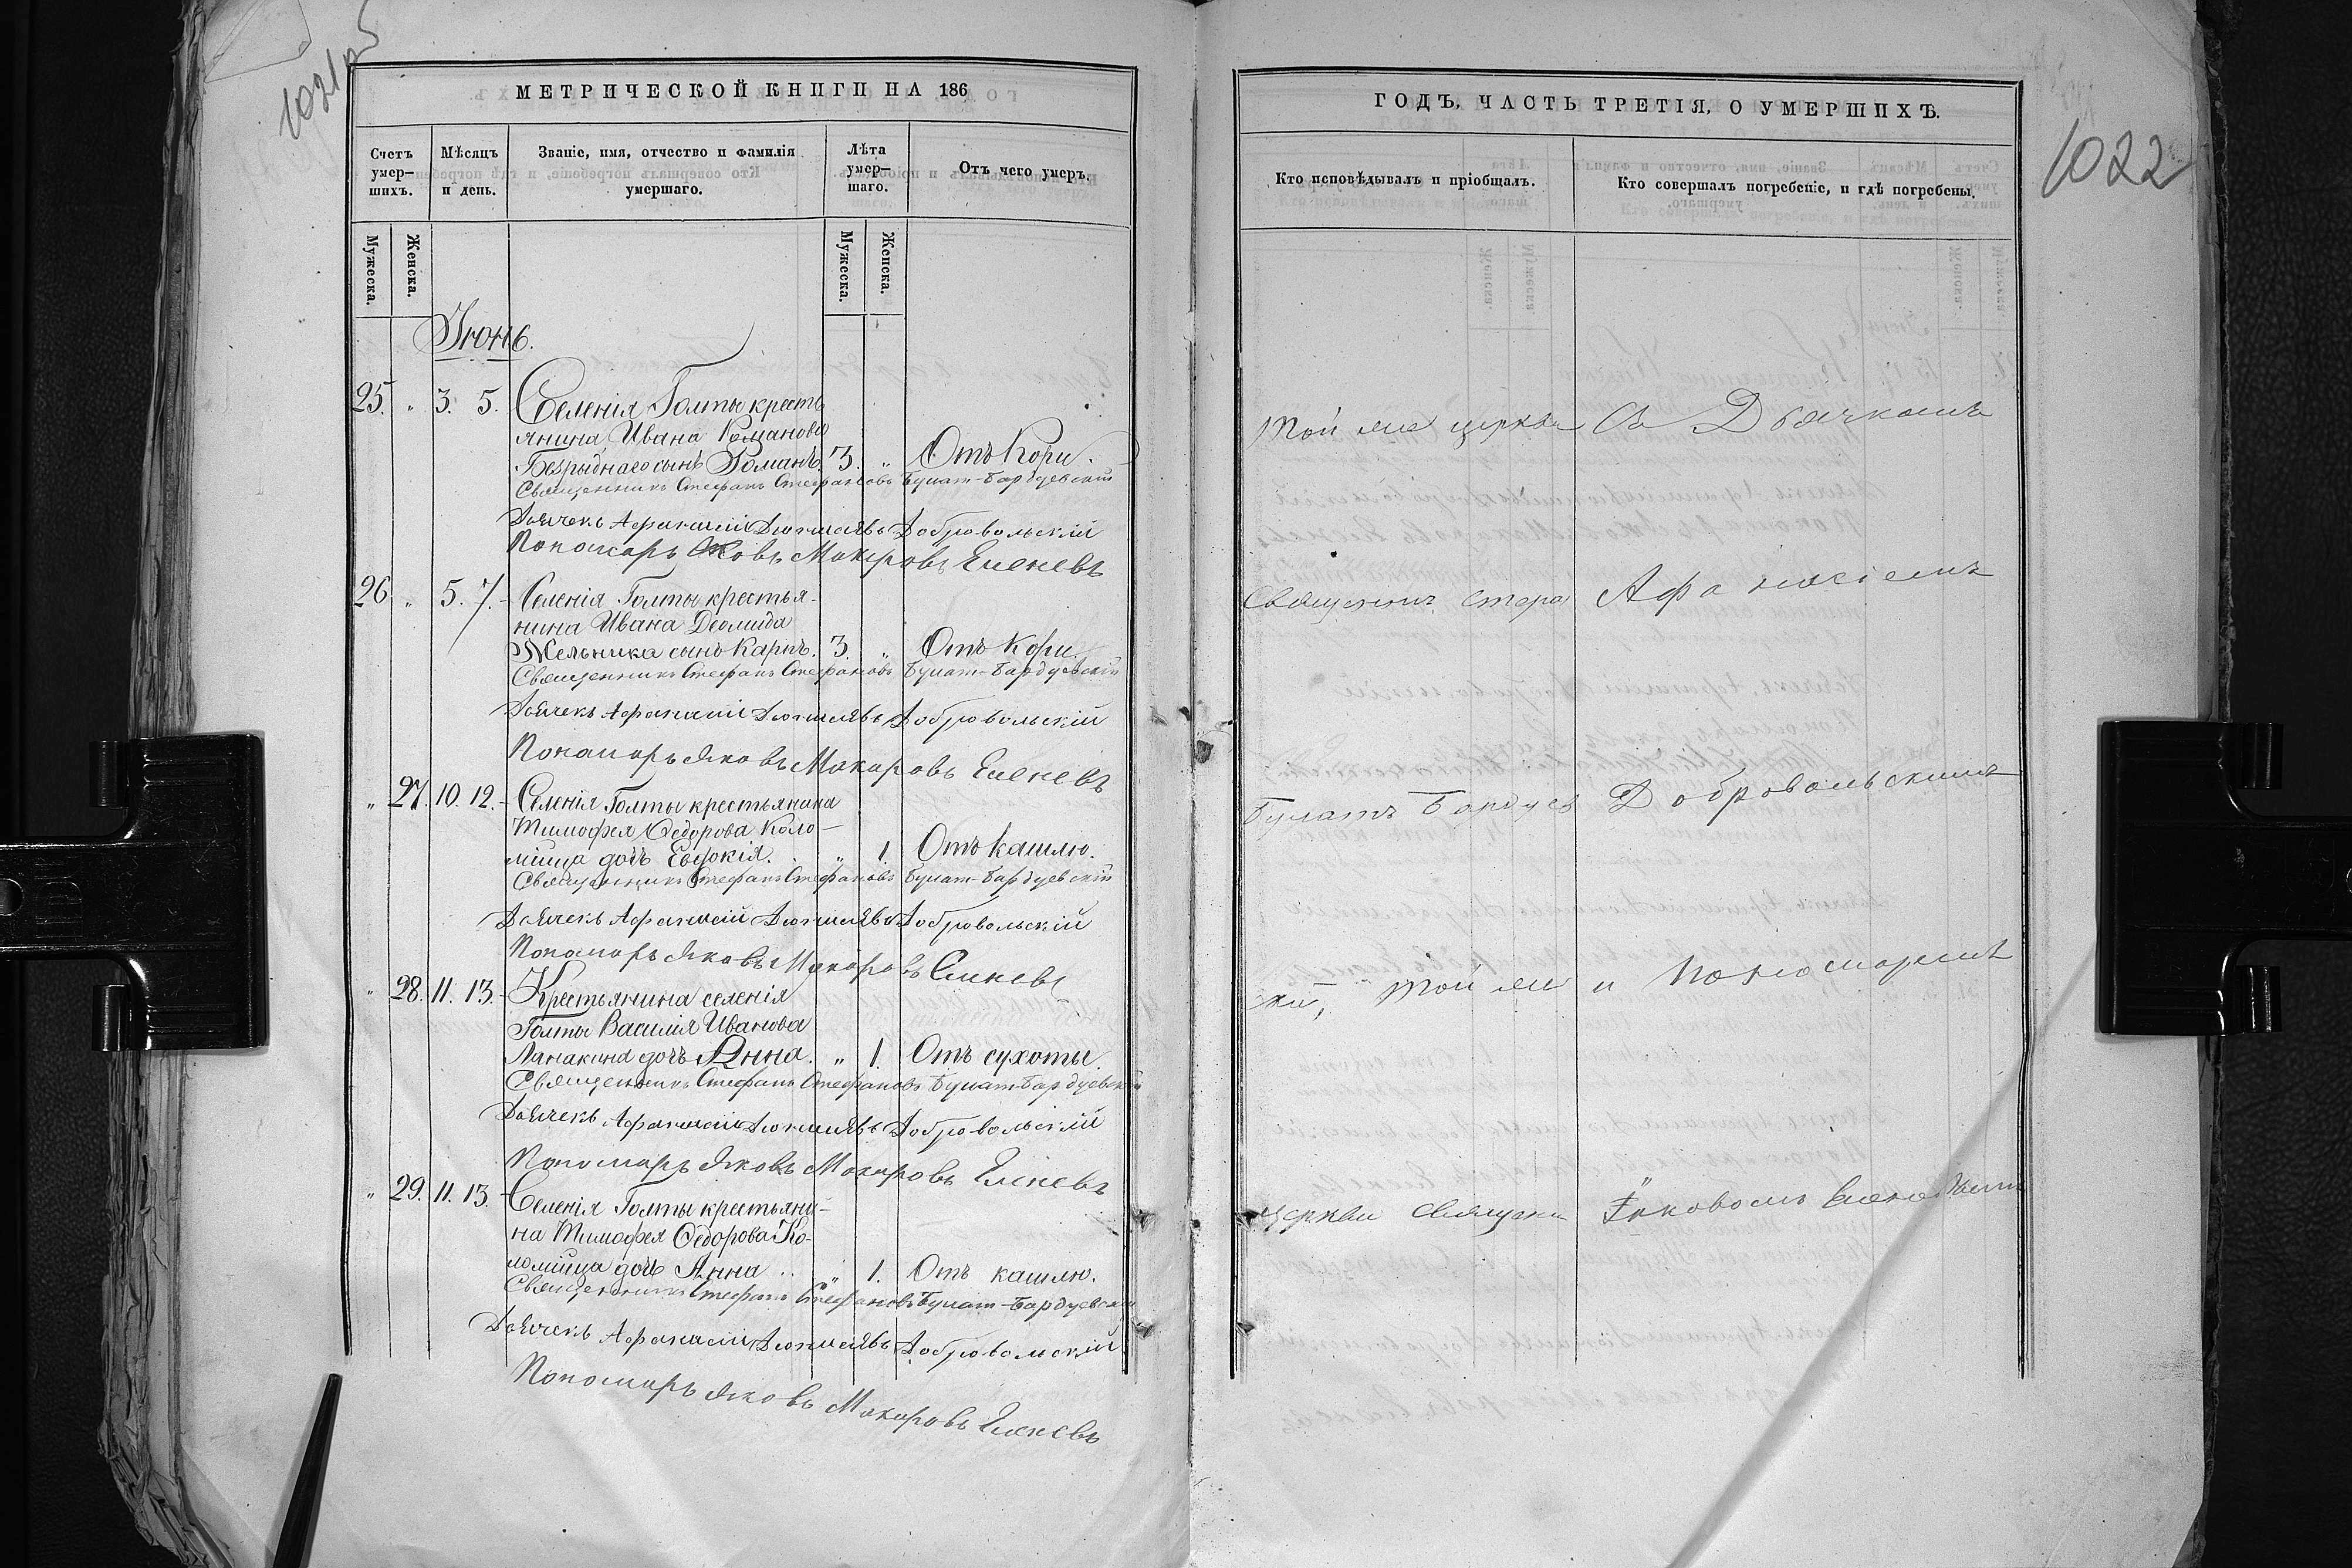 1021 об
МЕТРИЧЕСКОЙ КНИГИ НА 186
Счетъ умер-шихъ.
Мѣсяцъ и день.
Званіе, имя, отчество и фамилія умершаго.
Лѣта умер-шаго.
Отъ чего умеръ.
Мужеска.
Женска.
Мужеска.
Женска.
Іюнь.
25. „ 3. 5. Селенія Голты кресть
янина Ивана Романова
Безрыднаго сынъ Романъ. 3. „ Отъ Кори.
Священникъ Стефанъ Стефановъ Булат-Бардуевскій
Дьячекъ Афанасій Добровольскій
Пономарь Яковъ Макаровъ Еленевъ
26 „ 5. 7. Селенія Голты крестья-
нина Ивана Деомида
Мельника сынъ Карпъ. 3. „ Отъ Кори.
Священникъ Стефанъ Стефановъ Булат-Бардуевскій
Дьячекъ Афанасій Добровольскій
Пономарь Яковъ Макаровъ Еленевъ
„ 27. 10. 12. Селенія Голты крестьянина
Тимофея Ѳедорова Коло-
мійца дочь Евдокія. „ 1. Отъ кашлю.
Священникъ Стефанъ Стефановъ Булат-Бардуевскій
Дьячекъ Афанасій Добровольскій
Пономарь Яковъ Макаровъ Еленевъ
„ 28. 11. 13. Крестьянина селенія
Голты Василія Иванова
дочь Анна. „ 1. Отъ сухоты.
Священникъ Стефанъ Стефановъ Булат-Бардуевскій
Дьячекъ Афанасій Добровольскій
Пономарь Яковъ Макаровъ Еленевъ
„ 29. 11. 13. Селенія Голты крестьяни-
на Тимофея Ѳедорова Ко-
ломійца дочь Анна .. „ 1. Отъ кашлю.
Священникъ Стефанъ Стефановъ Булат-Бардуевскій
Дьячекъ Афанасій Добровольскій
Пономарь Яковъ Макаровъ Еленевъ
ГОДЪ, ЧАСТЬ ТРЕТІЯ, О УМЕРШИХЪ.
1022
Кто исповѣдывалъ и пріобщалъ.
Кто совершалъ погребеніе, и гдѣ погребены.
Той же церкви
Съ Дьячкомъ
Священник Стефа
Афанасіемъ
Булатъ Бардуев
Добровольскимъ
кій, той же
и Пономаремъ
церкви священни
Іаковомъ Еленевымъ